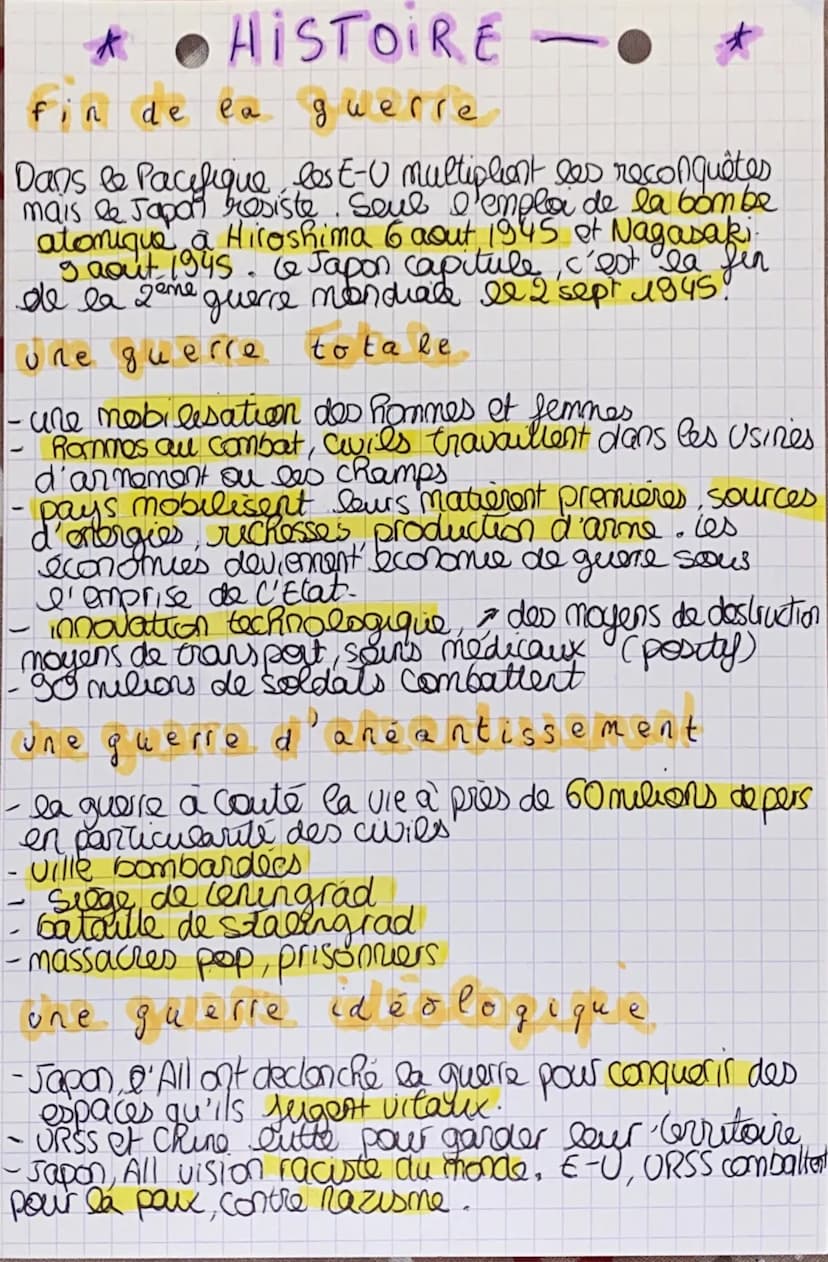 * HiSTOiRE — *
fin de la guerre
Dans le Pacifique, les E-U multiplient les reconquêtes
mais le Japon résiste. Seul l'emploi de la bombe
atomique à Hiroshima 6 aout 1945 et Nagasaki
9 août 1945. Le Japon capitule, c'est la fin
de la 2ème guerre mondiale le 2 sept 1945.
une guerre totale
- une mobilisation des hommes et femmes
- Hommes au combat, civils travaillent dans les usines
d'armement ou les champs
- pays mobilisent leurs matièront premières, sources
d'energies, richesses production d'arme. les
économies deviennent économie de guerre sous
l'emprise de l'Etat.
- innovation technologique, ↗ des moyens de destruction
moyens de transport, soins médicaux (positif)
- 90 milions de soldats combattent
une guerre d'anéantissement
- la guerre à couté la vie à près de 60 milions de pers
en particularité des civils
- ville bombardées
- siège de Leningrad
- bataille de Stalingrad
- massacres pop, prisonniers
une guerre idéologique
- Japon, l'All ont declenché la guerre pour conquerir des
espaces qu'ils jugent vitaux.
- URSS et Chine lutte pour garder leur territoire
- Japon, All vision raciste du monde. E-U, URSS combattent
pour la paix, contre nazisme.